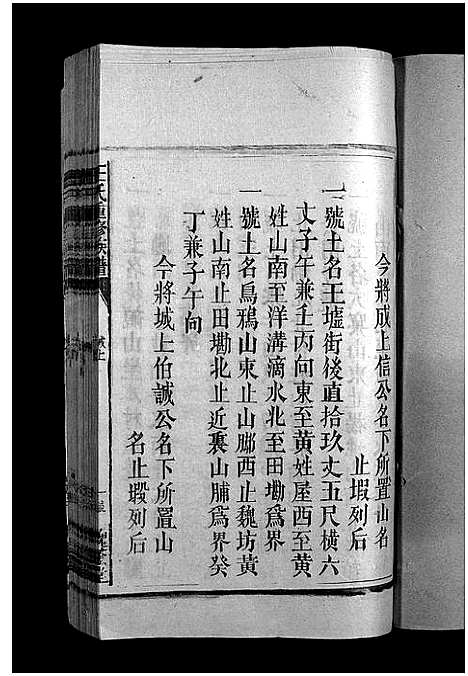 今將成上信公名下所置山名
止塅列后
一號土名王墟街後直拾玖丈五尺橫六
丈子午兼壬丙向東至黃姓屋西至黃
姓山南至洋溝滴水北至田墈爲界
一號土名烏鴉山東止山腳西止魏坊黃
姓山南止田墈北止近裏山脯爲界癸
丁兼子午向
今將城上伯誠公名下所置山
名止塅列后
王氏重修族譜